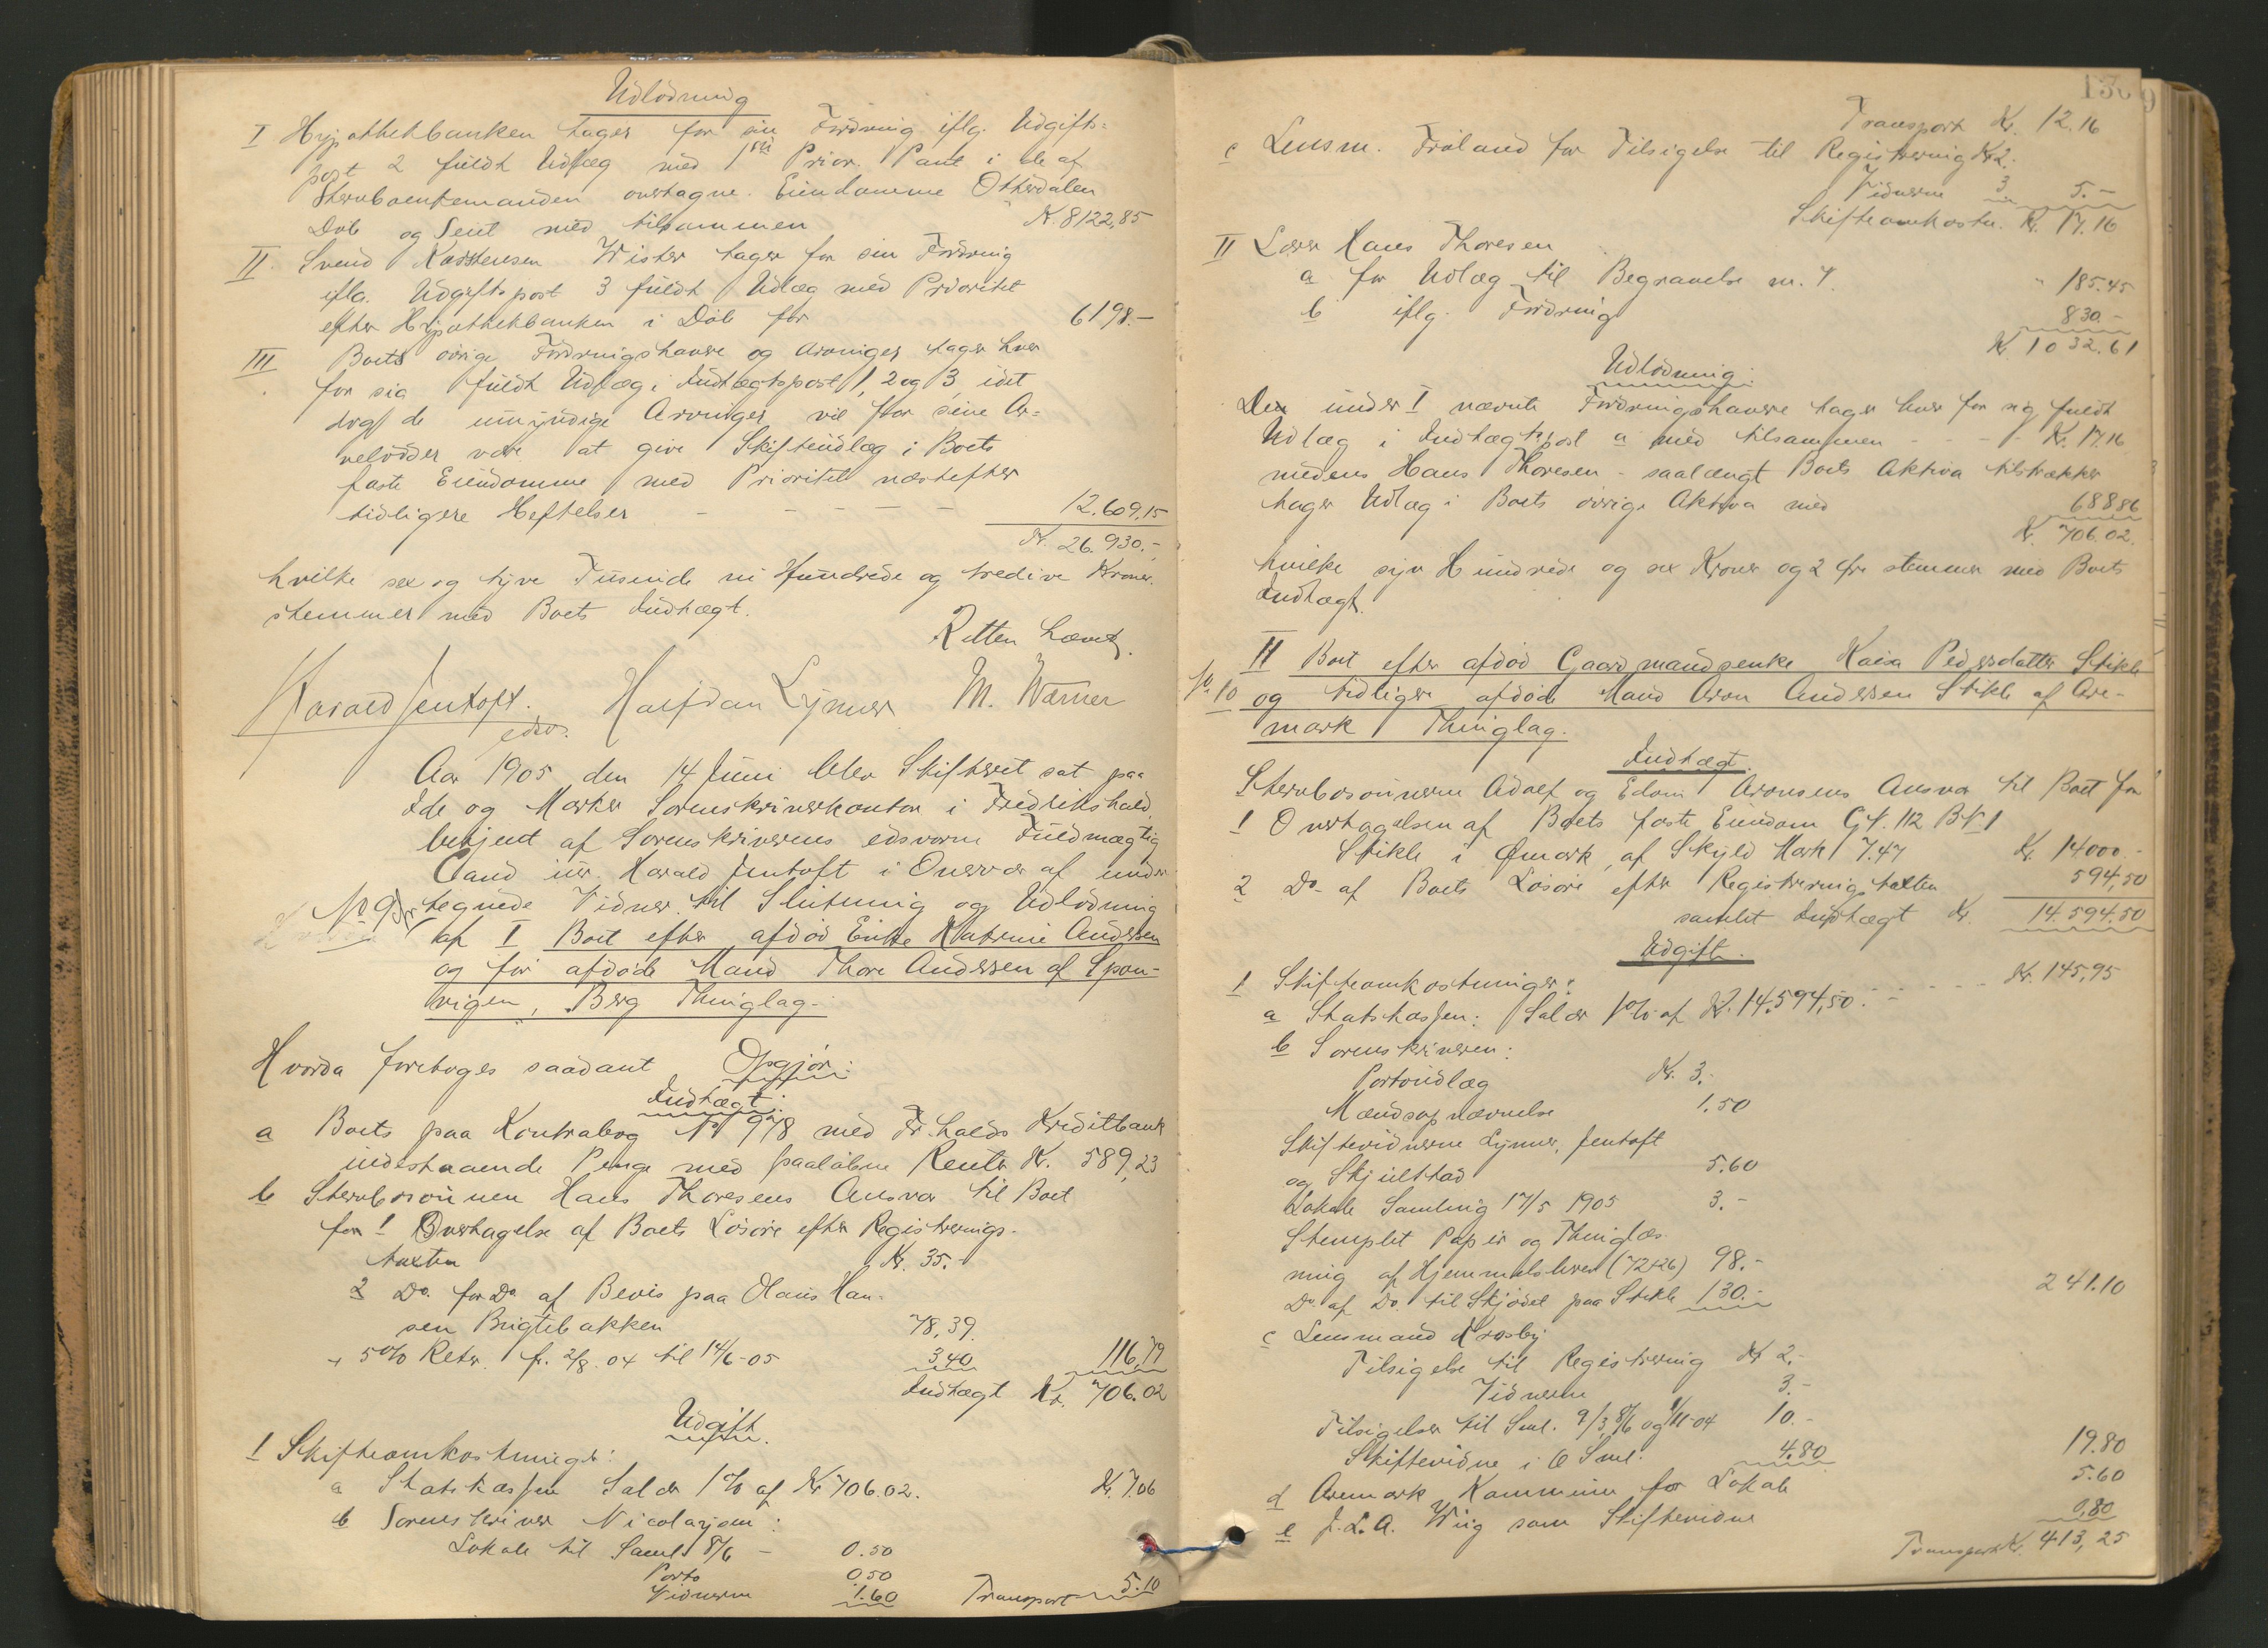 Udlodning
I Hypothekbanken tager for sin Fordring iflg. Udgifts=
post 2 fuldt Udlæg med 1ste Prior. Pant i de af
Stervboenkemanden overtagne Eiendomme Otterdalen
Døle og Seut med tilsammen K. 8122,85
II. Svend Karstensen Wister tager for sin Fordring
iflg. Udgiftspost 3 fuldt Udlæg med Prioritet
efter Hypothekbanken i Døle for 6198.-
III Boets øvrige Fordringshavere og Arvinger tager hver
for sig fuldt Udlæg i Indtægtspost 1, 2 og 3, idet
dog de umyndige Arvinger vil for sine Ar=
velodder være at give Skifteudlæg i Boets
faste Eiendomme med Prioritet næstefter
tidligere Heftelser - - - - - 12.609,15
Kr. 26.930.-
hvilke sex og tyve Tusinde ni Hundrede og tredive Kroner
stemmer med Boets Indtægt.
Retten hævet.
Harald Jentoft. Halfdan Lynner M. Warner
edsv.
Aar 1905 den 14 Juni blev Skifteret sat paa
Ide og Marker Sorenskriverkontor i Fredrikshald,
betjent af Sorenskriverens edsvorne Fuldmægtig
Cand. jur. Harald Jentoft i Overvær af under
No 9 tegnede Vidner til Slutning og Udlodning
af I Boet efter afdød Enke Katrine Andersen
og før afdøde Mand Thore Andersen af Spon-
vigen, Berg Thinglag.
Hvorda foretoges saadant Opgjør:
Indtægt:
a Boets paa Kontrabog No 978 med Fr.halds Kreditbank
indestaaende Penge med paaløbne Renter Kr. 589,23
b Stervbosønnen Hans Thoresens Ansvar til Boet
for 1 Overtagelse af Boets Løsøre efter Registrerings-
taxten Kr. 35.-
2 Do. for Do. af Bevis paa Olaus Han-
sen Brigtebakken 78,39.
+ 5% Rter. fr. 2/8.04 til 14/6-05 3,40 116,79
Indtægt Kr. 706.02
Udgift.
1 Skifteomkostninger:
a Statskassen Salær 1% af Kr 706.02. Kr. 7.06
b Sorenskriver Nicolaysen:
Lokale til Saml. 8/6 - 0.50
Porto 0.50
Vidnerne 1.60 Transport 5.10
Transport Kr. 12.16
c Lensm. Frøland for Tilsigelse til Registrering Kr 2.
Vidnerne 3 5.-
Skifteomkostn. Kr. 17.16
II Lærer Hans Thoresen
a for Udlæg til Begravelse m. V. " 185.45
b iflg. Fordring 830.-
Kr. 1032.61
Udlodning:
De under I nævnte Fordringshavere tager hver for sig fuldt
Udlæg i Indtægtspost a med tilsammen - - - - Kr. 17.16
medens Hans Thoresen - saalangt Boets Aktiva tilstrækker
tager Udlæg i Boets øvrige Aktiva med 688.86
Kr. 706.02.
hvilke syv Hundrede og sex Kroner og 2 Øre stemmer med Boets
Indtægt.
II Boet efter afdød Gaardmandsenke Kaisa Pedersdatter Stikle
No 10 og tidligere afdøde Mand Aron Andersen Stikle af Are-
mark Thinglag.
Indtægt.
Stervbosønnerne Adolf og Edom Aronsens Ansvar til Boet for
1 Overtagelsen af Boets faste Eiendom GN. 112 BN 1
Stikle i Ømark, af Skyld Mark 7.47 Kr. 14000.-
2 Do. af Boets Løsøre efter Registreringstaxten 594,50
samlet Indtægt Kr. 14.594.50
Udgift.
1 Skifteomkostninger:
a Statskassen: Salær 1% af Kr. 14.594,50. - - - - - Kr. 145,95
b Sorenskriveren:
Portoudlæg Kr. 3.-
Mændsopnævnelse 1.50
Skiftevidnerne Lynner, Jentoft
og Skjulstad 5.60
Lokale Samling 17/5 1905 3.-
Stemplet Papir og Thinglæs-
ning af Hjemmelsbrev (72+26) 98.-
Do. af Do. til Skjødet paa Stikle 130.- 241.10
c Lensmand Krosby
Tilsigelse til Registrering Kr 2.-
Vidnerne 3.-
Tilsigelser til Saml. 9/3 8/6 og 9/11-04 10.-
Skiftevidne i 6 Saml. 4.80 19.80
d Aremark Kommune for Lokale 5.60
e J. L. A. Wiig som Skiftevidne 0,80
Transport Kr. 413,25